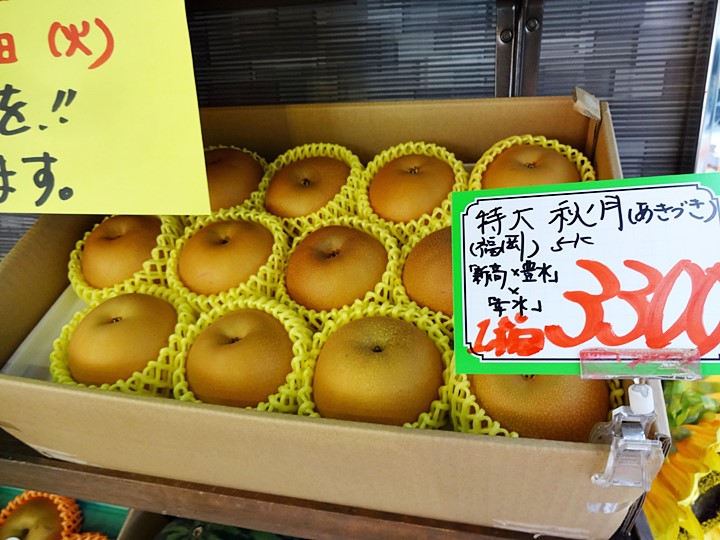 (火)
を!!
ます。
特大 秋月(あきづき)
(福岡)
「新高×豊水」
×
「幸水」
1箱 3300